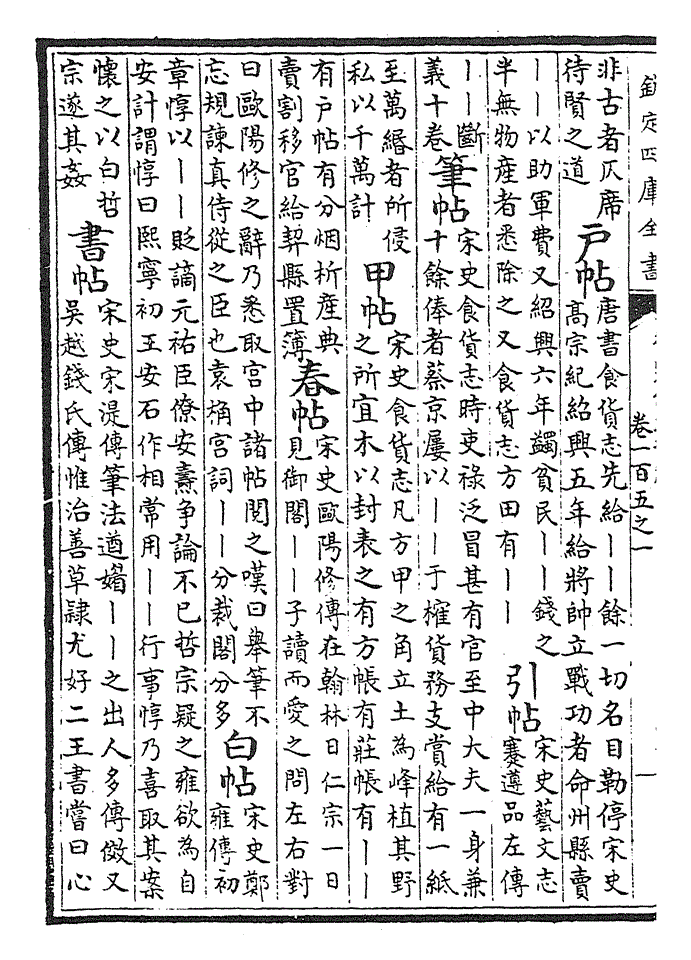 欽定四庫全書
卷一百五之一
非古者仄席
待賢之道
戶帖
唐書食貨志先給丨丨餘一切名目勒停宋史
高宗紀紹興五年給將帥立戰功者命州縣賣
丨丨以助軍費又紹興六年蠲貧民丨丨錢之
半無物産者悉除之又食貨志方田有丨丨
引帖
宋史藝文志
蹇遵品左傳
丨丨斷
義十卷
筆帖
宋史食貨志時吏祿泛冒甚有官至中大夫一身兼
十餘俸者蔡京屢以丨丨于榷貨務支賞給有一紙
至萬緡者所侵
私以千萬計
甲帖
宋史食貨志凡方甲之角立土為峰植其野
之所宜木以封表之有方帳有莊帳有丨丨
有戶帖有分烟析産典
賣割移官給契縣置簿
春帖
宋史歐陽修傳在翰林日仁宗一日
見御閣丨丨子讀而愛之問左右對
曰歐陽修之辭乃悉取宮中諸帖閱之嘆曰舉筆不
忘規諫真侍從之臣也袁桷宮詞丨丨分裁閣分多
白帖
宋史鄭
雍傳初
章惇以丨丨貶謫元祐臣僚安燾争論不已哲宗疑之雍欲為自
安計謂惇曰熙寧初王安石作相常用丨丨行事惇乃喜取其案
懷之以白哲
宗遂其姦
書帖
宋史宋湜傳筆法遒媚丨丨之出人多傳傚又
吳越錢氏傳惟治善草隷尤好二王書嘗曰心